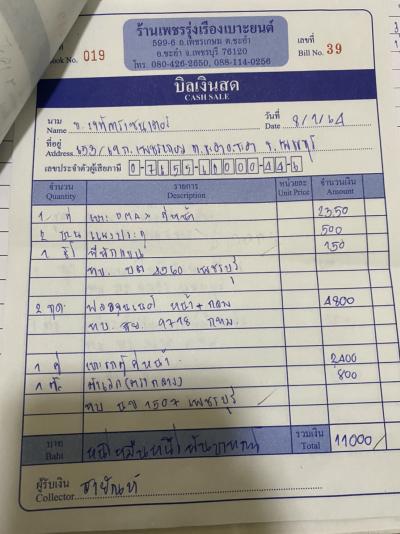 ร้านเพชรรุ่งเรืองเบาะยนต์
599-6 ถ.เพชรเกษม ต.ชะอำ
อ.ชะอำ จ.เพชรบุรี 76120
โทร. 080-426-2650, 088-114-0256
ที่
Book No. 019
เลขที่
Bill No. 39
บิลเงินสด
CASH SALE
นาม
Name
วันที่
Date 8/1/64
ที่อยู่
Address 653/69 ถ. เพชรเกษม ต.ชะอำ อ.ชะอำ จ. เพชรบุรี
เลขประจำตัวผู้เสียภาษี 0-7655-60000-44-6
จำนวน รายการ หน่วยละ จำนวนเงิน
Quantity Description Unit Price Amount
1 คู่ เบาะ DMAX คู่หน้า 2350
2 บาน แผงประตู 500
1 150
ทบ. บต 4060 เพชรบุรี
2 หน้า + กลาง 4800
ทบ. 9718 กทม.
1 คู่ คู่หน้า 2400
1 ตัว 800
ทบ นข 1507 เพชรบุรี
บาท
Baht หนึ่งหมื่นหนึ่งพันบาท
รวมเงิน
Total 11000/
ผู้รับเงิน
Collector